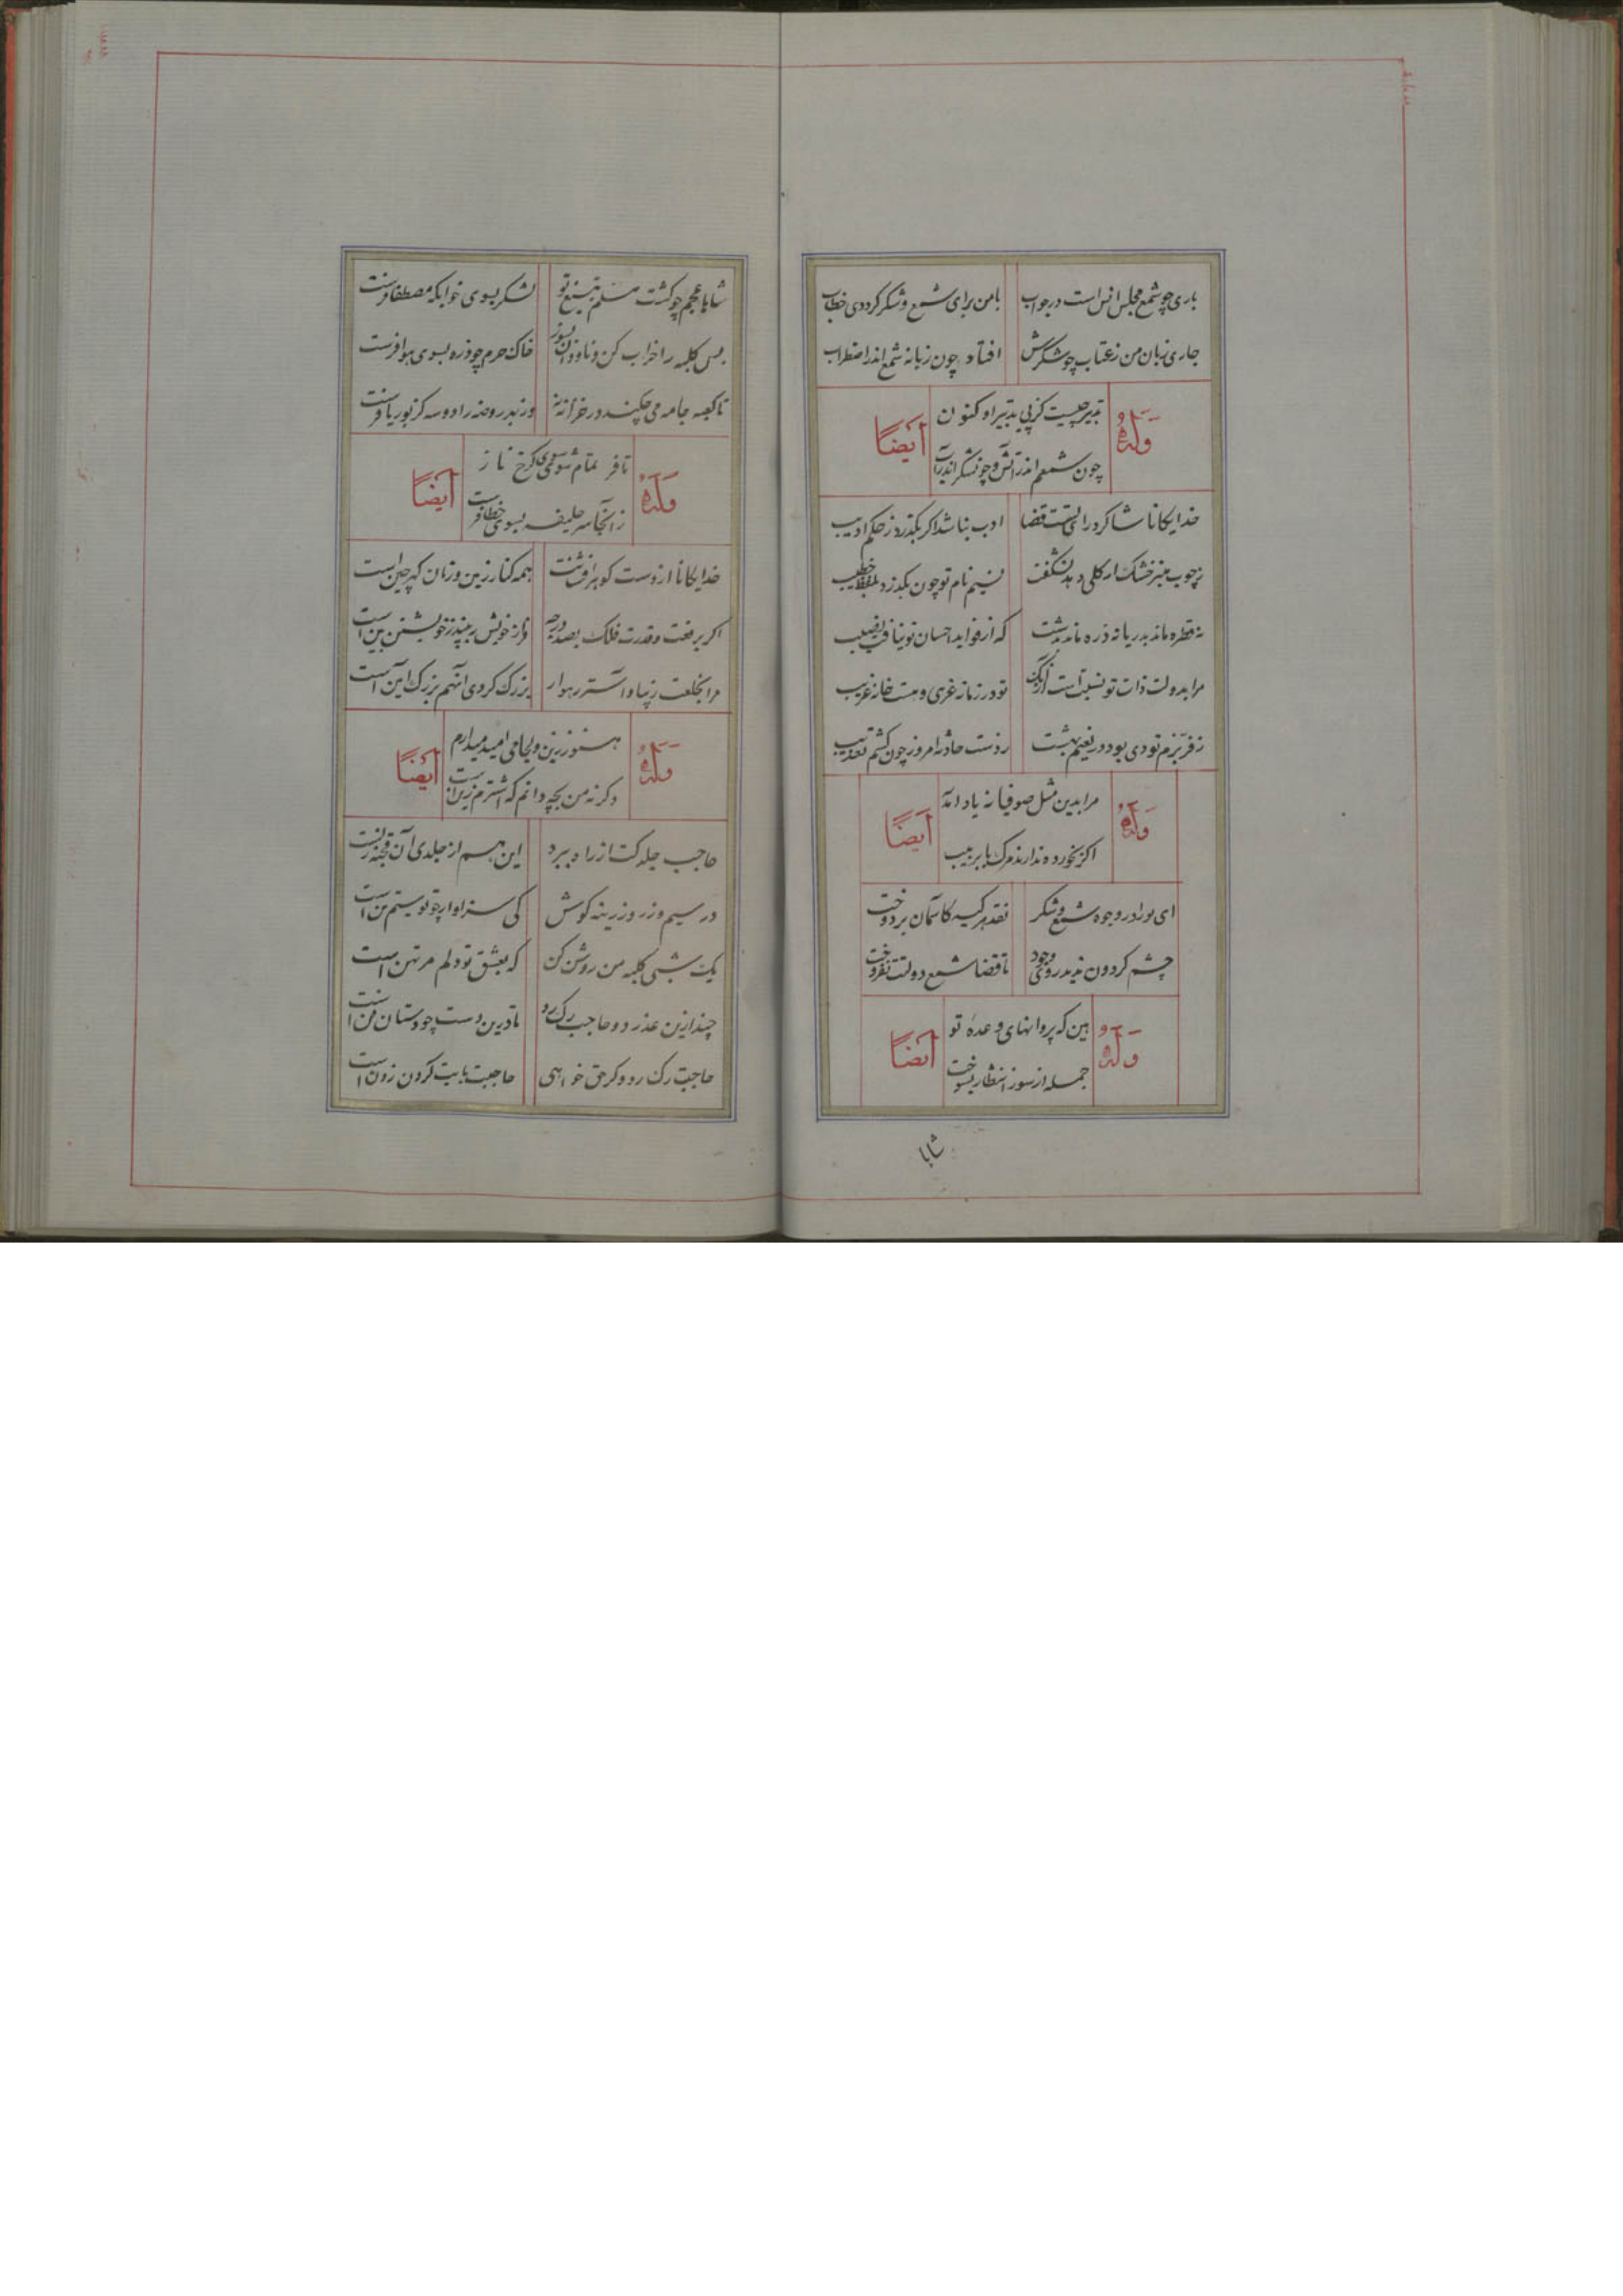 باری چو شمع مجلس انس است در جواب با من برای شمع و شکر کردی خطاب
جاری زبان من ز عتاب چو شکرش افتاد چون زبانه شمع اندر اضطراب
وله تدبیر چیست کز پی تدبیر او کنون ایضاً
چون شمعم اندر آتش و چون شکر اندر آب
خدایکانا شاکرد رای تست قضا ادب نباشد اکر بکذرد ز حکم ادیب
ز چوب منبر خشک ار کلی دمد نشکفت نسیم نام تو چون بکذرد بلفظ خطیب
نه قطره ماند بدریا نه ذره ماند بدشت که از فواید احسان تو نیافت نصیب
مرا بدولت ذات تو نسبتست از آنک تو در زمانه غری و هست خانه غریب
ز فر بزم تو دی بود در نعیم بهشت ز دست حادثه امروز چون کشم تعذیب
وله مرا بدین مثل صوفیانه یاد آمد ایضاً
اکر نخورده ندارند مرک با بر بیب
ای ترا در وجوه شمع و شکر نقد هر کیسه کاسمان بردوخت
چشم کردون ندید روی وجود تا قضا شمع دولتت نفروخت
وله هین که پروانهای وعده تو ایضاً
جمله از سوز انتظار بسوخت
شاها
شاها عجم چو کشت مسلم بتیغ تو لشکر بسوی خوابکه مصطفا فرست
پس کلبه را خراب کن و ناودان بسوز خاک حرم چو ذره بسوی هوا فرست
تا کعبه جامه می چکند در خزانه نه وز بهر روضه را دو سه کز بوریا فرست
وله تا فر تمام شو سوی کرخ تاز ایضاً
زآنجا سر خلیفه بسوی خطا فرست
خدایکانا از دست کوهر افشانت همه کنار زمین و زمان کهر چین است
اکر برفعت و قدرت فلک بصد درجه فراز خویش نبیند ز خویشتن بین است
مرا بخلعت زیبا و استر رهوار بزرک کردی آنهم بزرک این است
وله هنوز زین و لجامی امید میدارم ایضاً
وکرنه من بچه دانم که استرم زین است
حاجب جلد کت از راه ببرد این هم از جلدی آن قحبه زنست
در سیم و زر و زرینه کوش کی سزاوار چو تو سیم تن است
یک شبی کلبه من روشن کن که بعشق تو دلم مرتهن است
چند ازین عذر دو حاجب رک رو تا درین دست چو دستان فن است
حاجبت رک رو و کر حق خواهی حاجبت بابت کردن زدن است